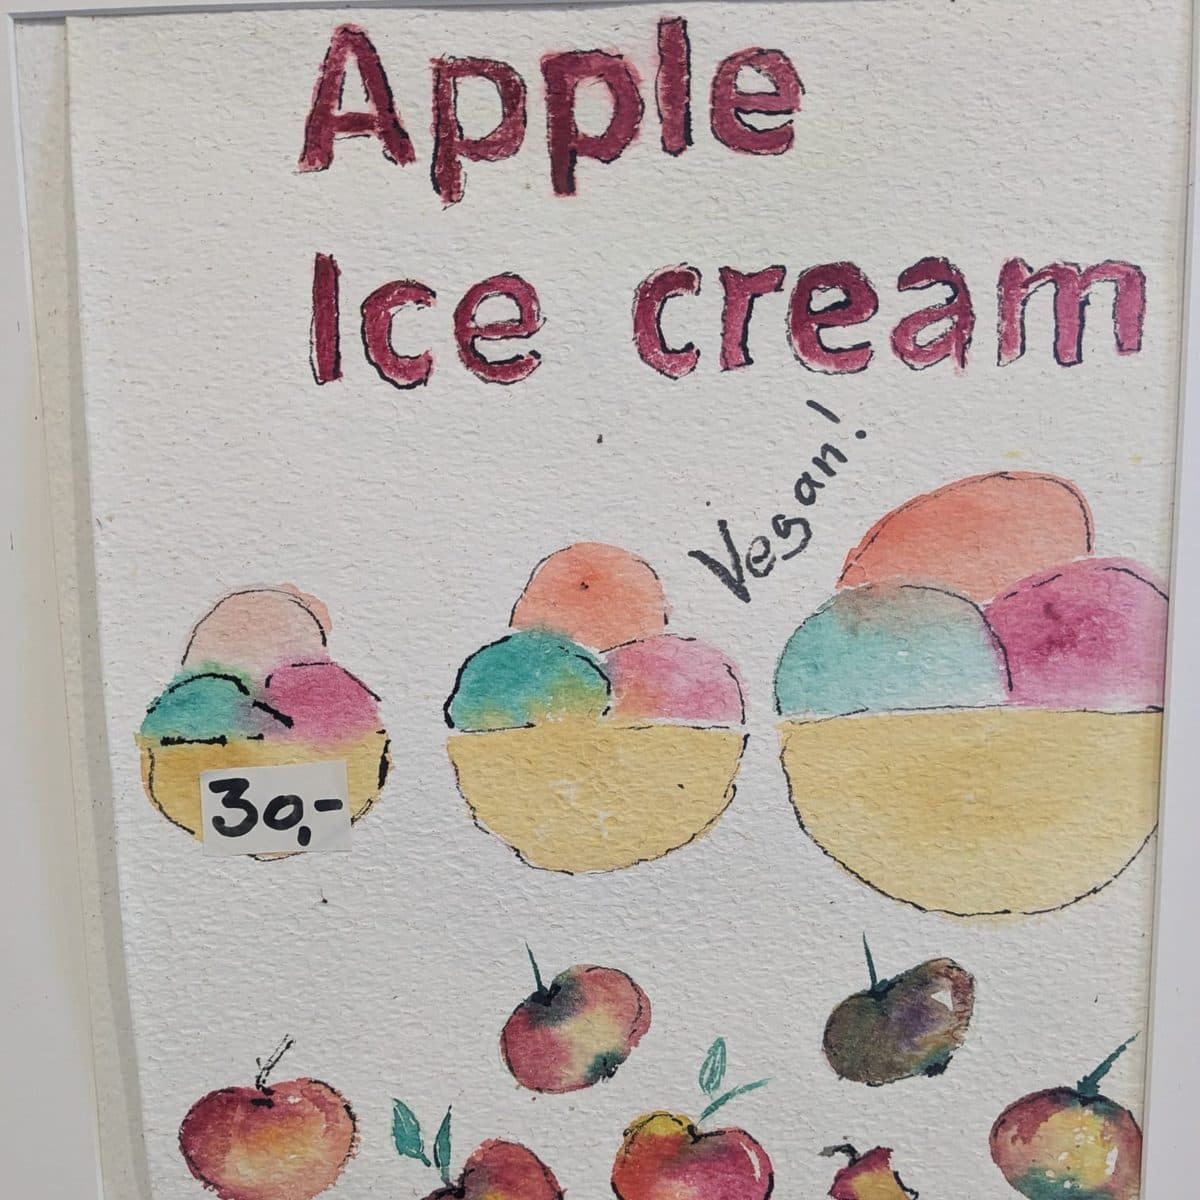 Apple
Ice cream
Vegan!
30,-